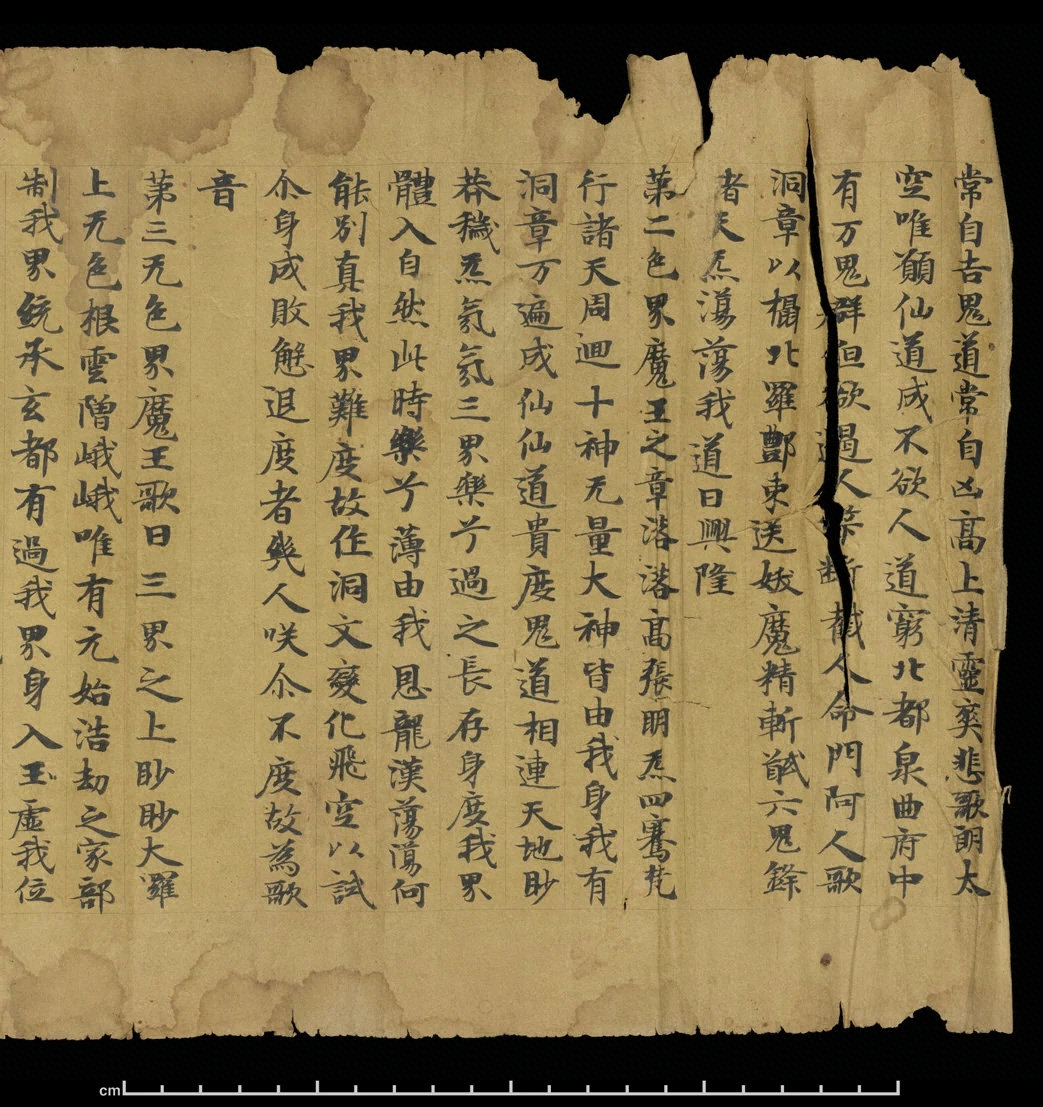 常自吉鬼道常自凶高上清靈爽悲歌朗太
空唯願仙道成不欲人道窮北都泉曲府中
有万鬼群但欲遏人笇斷截人命門阿人歌
洞章以檛北羅酆束送妖魔精斬馘六鬼鋒
者天炁蕩蕩我道日興隆
第二色界魔王之章落落高張明炁四騫梵
行諸天周迴十神无量大神皆由我身我有
洞章万遍成仙仙道貴度鬼道相連天地眇
莽穢炁氛氛三界樂兮過之長存身度我界
體入自然此時樂兮薄由我恩龍漢蕩蕩何
能別真我界難度故作洞文變化飛空以試
尒身成敗懈退度者幾人咲尒不度故為歌
音
第三无色界魔王歌曰三界之上眇眇大羅
上无色根雲層峨峨唯有元始浩劫之家部
制我界統承玄都有過我界身入玉虛我位